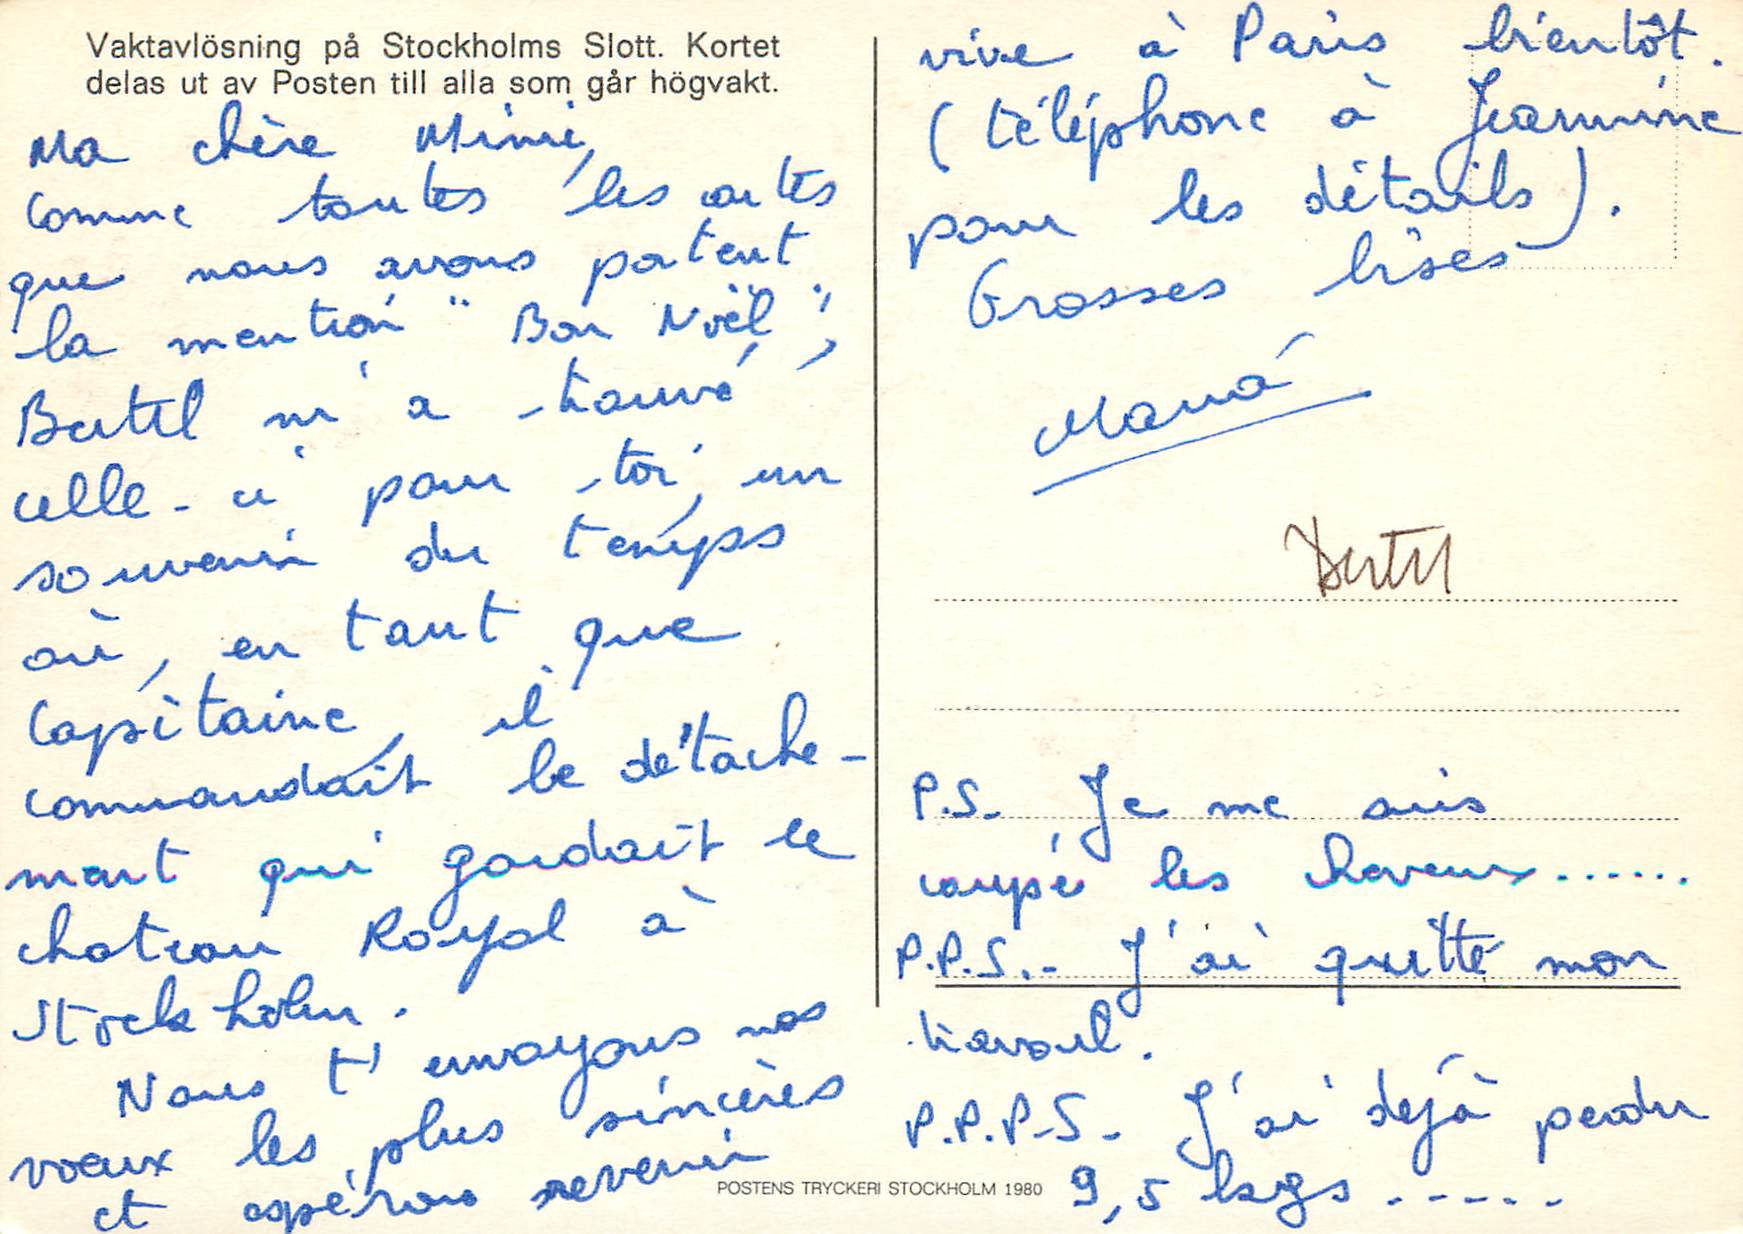 Vaktavlösning på Stockholms Slott. Kortet
delas ut av Posten till alla som går högvakt.
Ma chère Mimi,
Comme toutes les cartes
que nous avons portent
la mention "Bon Noël",
Bertil m'a trouvé
celle-ci pour toi, un
souvenir du temps
où, en tant que
Capitaine, il
commandait le détache-
ment qui gardait le
chateau Royal à
Stockholm.
Nous t'envoyons nos
voeux les plus sincères
et espérons revenir
vivre à Paris bientôt.
(téléphone à Jeannine
pour les détails).
Grosses bises
Bertil
P.S. Je me suis
coupé les cheveux......
P.P.S.- J'ai quitté mon
travail.
P.P.P.S- J'ai déjà perdu
9,5 kgs .-----
POSTENS TRYCKERI STOCKHOLM 1980